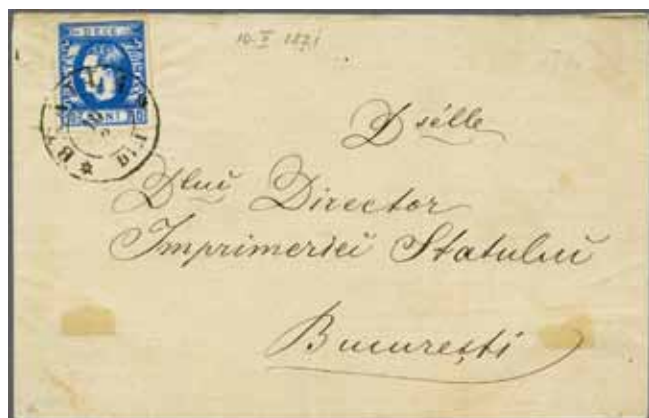 DECE
BANI
10. V 1871
Dséllé
Dluĭ Director
Imprimerieĭ Statuluĭ
Bucureşti